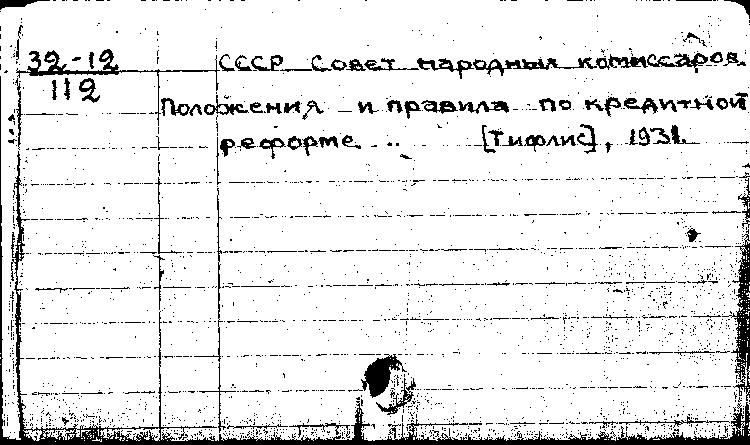 32-12
112
СССР Совет народных комиссаров.
Положения и правила по кредитной
реформе. .. [Тифлис], 1931.